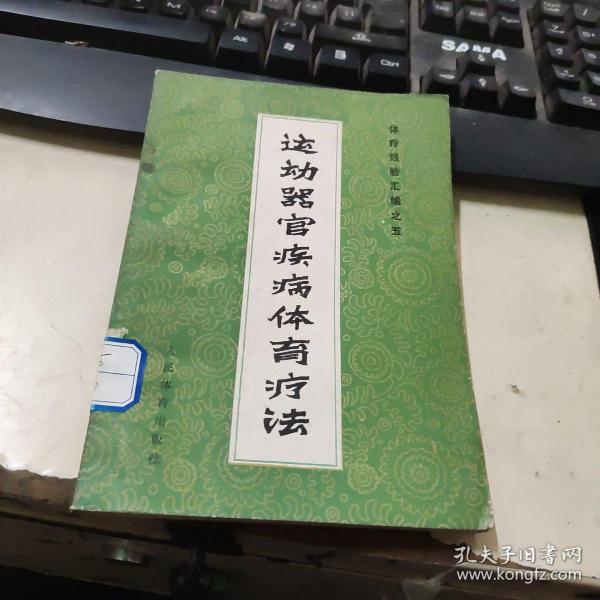 体疗经验汇编之五
运动器官疾病体育疗法
人民体育出版社
SAMA
Alt
Alt
Ctrl
孔夫子旧书网
www.kongfz.com